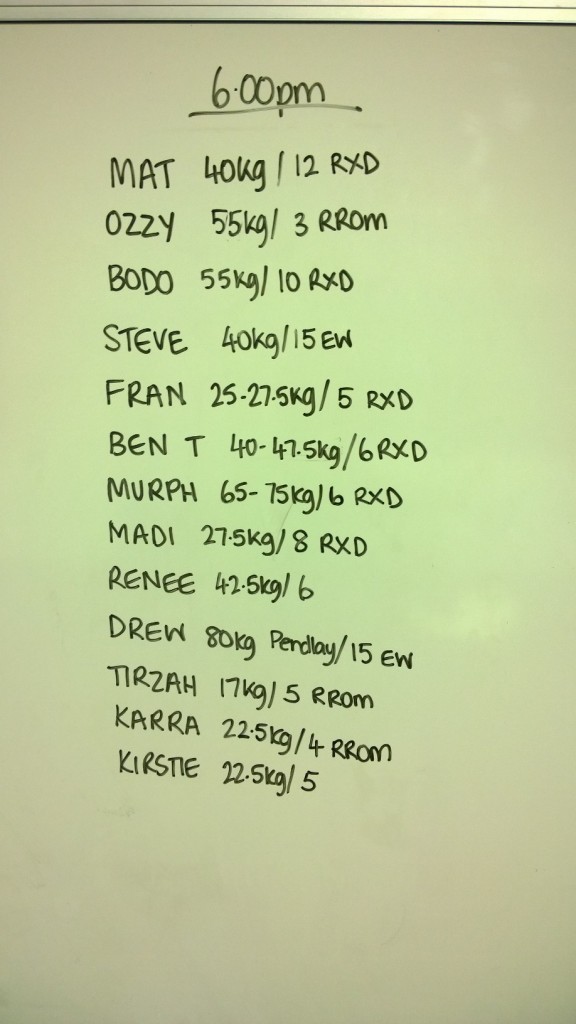 6.00pm
MAT 40kg / 12 RXD
OZZY 55kg/ 3 RROM
BODO 55kg/ 10 RXD
STEVE 40kg/15 EW
FRAN 25-27.5kg/ 5 RXD
BEN T 40-47.5kg/6 RXD
MURPH 65-75kg/6 RXD
MADI 27.5kg/8 RXD
RENEE 42.5kg/ 6
DREW 80kg Pendlay/15 EW
TIRZAH 17kg/ 5 RROM
KARRA 22.5kg/4 RROM
KIRSTIE 22.5kg/ 5